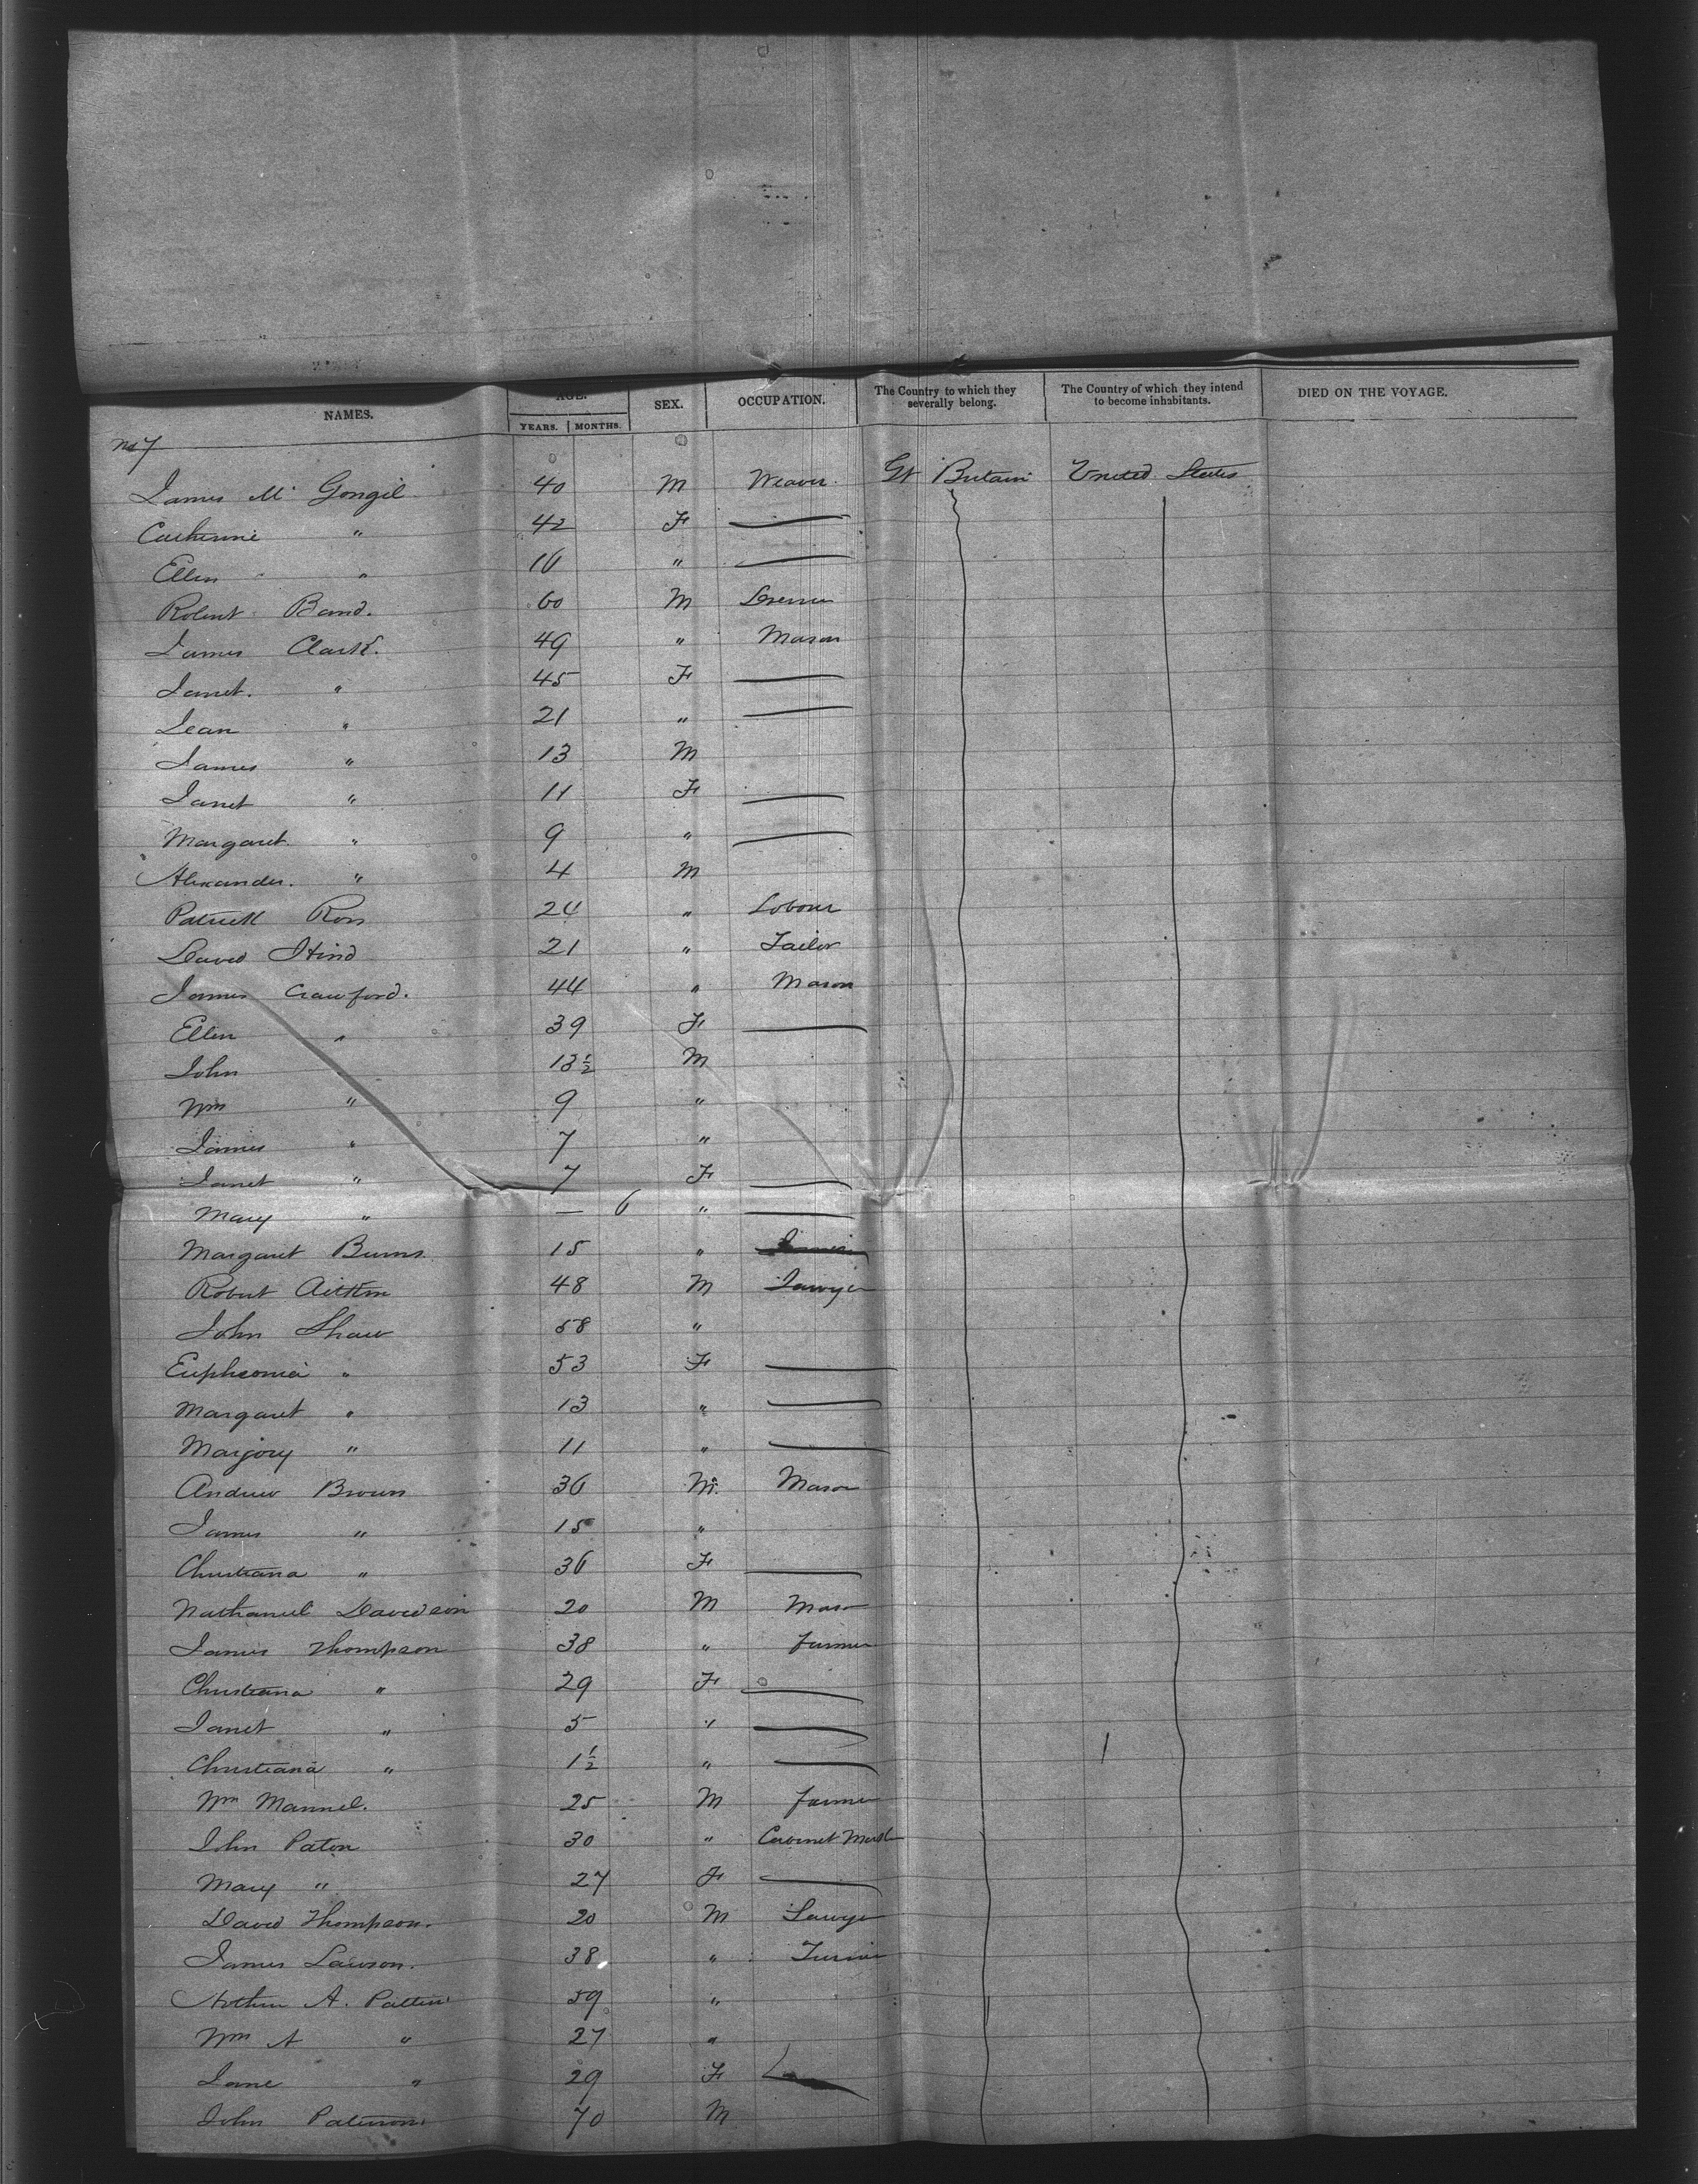 NAMES. AGE. YEARS. MONTHS. SEX. OCCUPATION. The Country to which they severally belong. The Country of which they intend to become inhabitants. DIED ON THE VOYAGE.
No 7
James Mc Gongil 40 M Weaver. Gt Britain United States
Catherine " 42 F —
Ellen " 16 " —
Robert Band. 60 M
James Clark. 49 " Mason
Janet. " 45 F —
Jean " 21 " —
James " 13 M
Janet " 11 F —
Margaret " 9 " —
Alexander. " 4 M
Patrick Ross 24 " Labour
David Hind 21 " Tailor
James Crawford. 44 " Mason
Ellen " 39 F —
John 13½ M
Wm " 9 "
James " 7 "
Janet " 7 F —
Mary " — 6 " —
Margaret Burns. 15 "
Robert Aitken 48 M Sawyer
John Shaw 58 "
Eupheomia " 53 F —
Margaret " 13 " —
Marjory " 11 " —
Andrew Brown 36 M. Mason
James " 15 "
Christiana " 36 F —
Nathaniel Davidson 20 M Mason
James Thompson 38 " farmer
Christiana " 29 F —
Janet " 5 " —
Christiana " 1½ " —
Wm Mannel. 25 M farmer
John Paton 30 " Cabinet Maker
Mary " 27 F —
David Thompson. 20 M Sawyer
James Lawson. 38 " Turner
A. 59 "
Wm A " 27 "
Jane " 29 F
John Paterson 70 M